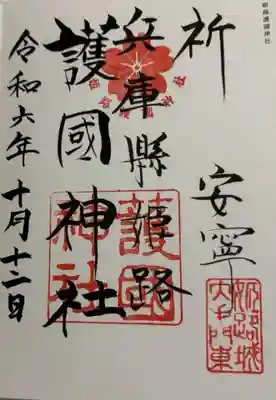 姫路護國神社
祈
安寧
兵庫縣姫路
護國神社
令和六年十月十二日
護國
神社
姫路城
大手門東